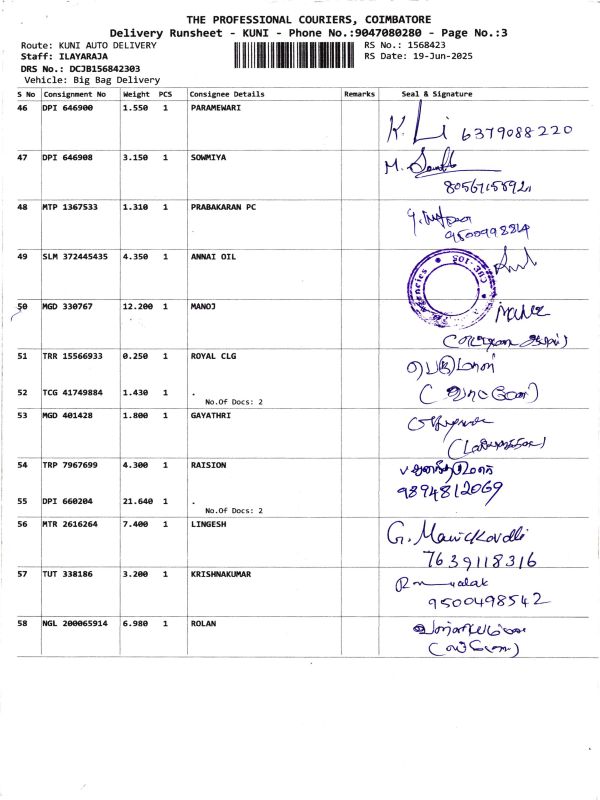 THE PROFESSIONAL COURIERS, COIMBATORE
Delivery Runsheet - KUNI - Phone No.:9047080280 - Page No.:3
Route: KUNI AUTO DELIVERY
RS No.: 1568423
Staff: ILAYARAJA
RS Date: 19-Jun-2025
DRS No.: DCJB156842303
Vehicle: Big Bag Delivery
S No Consignment No Weight PCS Consignee Details Remarks Seal & Signature
46 DPI 646900 1.550 1 PARAMEWARI
K. Li 6379088220
47 DPI 646908 3.150 1 SOWMIYA
M.
48 MTP 1367533 1.310 1 PRABAKARAN PC
49 SLM 372445435 4.350 1 ANNAI OIL
50 MGD 330767 12.200 1 MANOJ
51 TRR 15566933 0.250 1 ROYAL CLG
52 TCG 41749884 1.430 1 .
No.Of Docs: 2
53 MGD 401428 1.800 1 GAYATHRI
54 TRP 7967699 4.300 1 RAISION
9894812069
55 DPI 660204 21.640 1 .
No.Of Docs: 2
56 MTR 2616264 7.400 1 LINGESH
7639118316
57 TUT 338186 3.200 1 KRISHNAKUMAR
9500498542
58 NGL 200065914 6.980 1 ROLAN